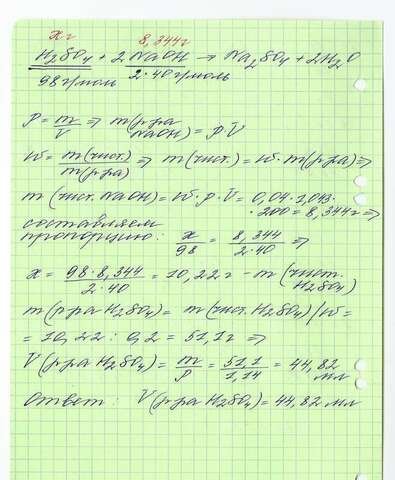 x г 8,344г
H₂SO₄ + 2 NaOH → Na₂SO₄ + 2H₂O
98 г/моль 2·40 г/моль
ρ = m/V ⇒ m(р-ра NaOH) = ρ·V
w = m(чист.)/m(р-ра) ⇒ m(чист.) = w·m(р-ра) ⇒
m(чист. NaOH) = w·ρ·V = 0,04·1,043·
·200 = 8,344г ⇒
составляем
пропорцию: x/98 = 8,344/2·40 ⇒
x = 98·8,344/2·40 = 10,22г - m(чист. H₂SO₄)
m(р-ра H₂SO₄) = m(чист. H₂SO₄)/w =
= 10,22 : 0,2 = 51,1г ⇒
V(р-ра H₂SO₄) = m/ρ = 51,1/1,14 = 44,82 мл
Ответ: V(р-ра H₂SO₄) = 44,82 мл